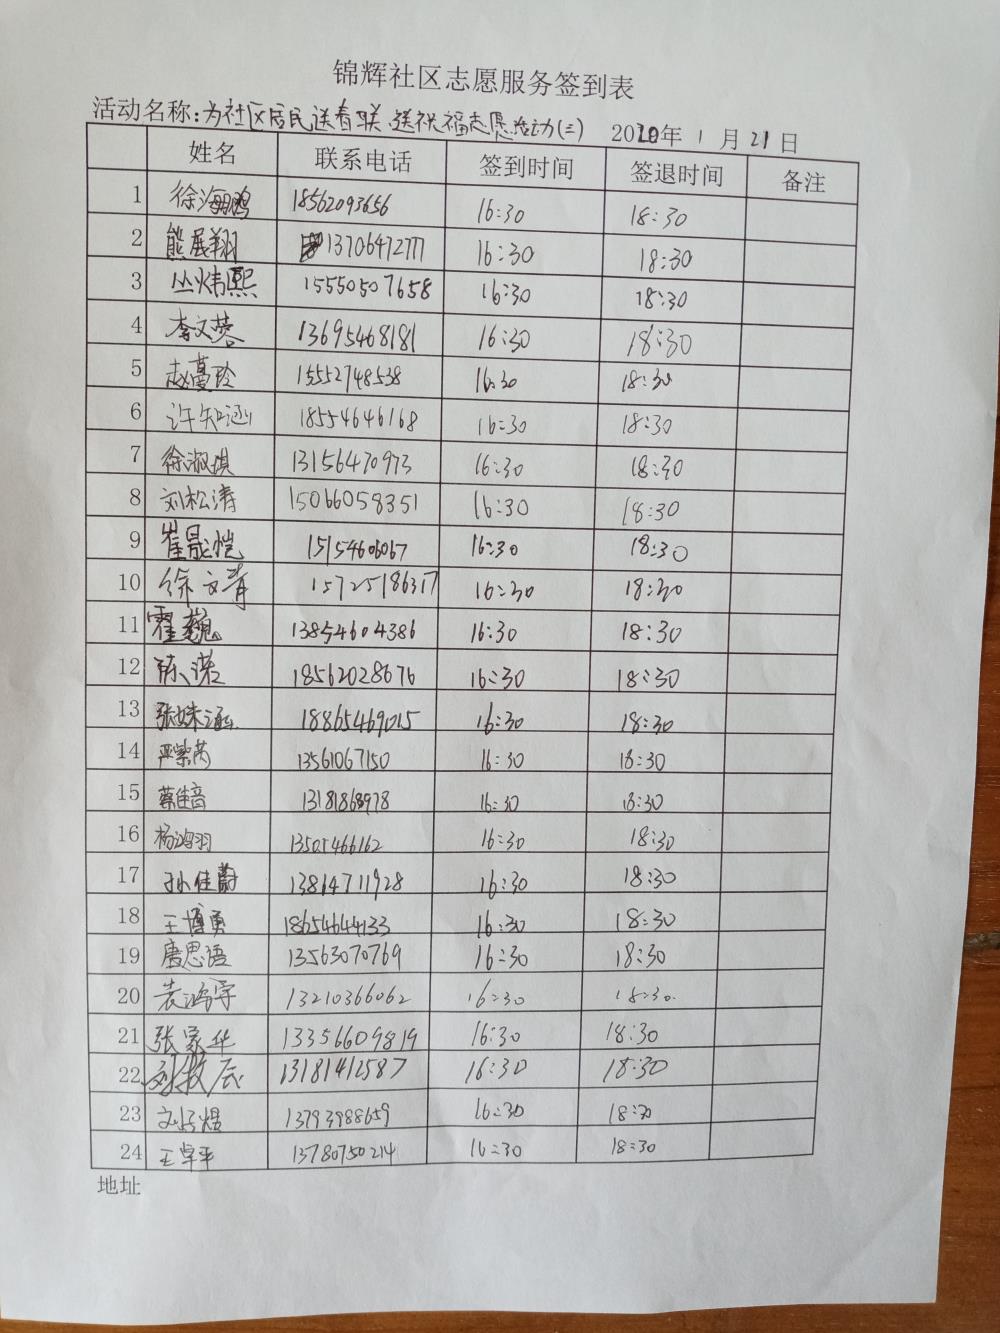 锦辉社区志愿服务签到表
活动名称:为社区居民送春联、送祝福志愿活动(三) 2020年 1 月 21 日
姓名 联系电话 签到时间 签退时间 备注
1 徐海鹏 18562093656 16:30 18:30
2 熊展翔 13706472777 16:30 18:30
3 丛炜熙 15550507658 16:30 18:30
4 李文蓉 13695468181 16:30 18:30
5 赵蔓玲 15552748538 16:30 18:30
6 许知涵 18554646168 16:30 18:30
7 徐淑琪 13156470973 16:30 18:30
8 刘松涛 15066058351 16:30 18:30
9 崔晟恺 15154606067 16:30 18:30
10 徐文青 15725186317 16:30 18:30
11 霍巍 13854604386 16:30 18:30
12 陈诺 18562028676 16:30 18:30
13 张姝涵 18865469015 16:30 18:30
14 严紫芮 13561067150 16:30 18:30
15 蔡佳音 13181868978 16:30 18:30
16 杨鸿羽 13505466162 16:30 18:30
17 孙佳蔚 13814711928 16:30 18:30
18 王博勇 18654644133 16:30 18:30
19 唐思语 13563070769 16:30 18:30
20 袁鸿宇 13210366062 16:30 18:30
21 张家华 13356609819 16:30 18:30
22 刘牧辰 13181412587 16:30 18:30
23 13793988659 16:30 18:30
24 王卓平 13780750214 16:30 18:30
地址